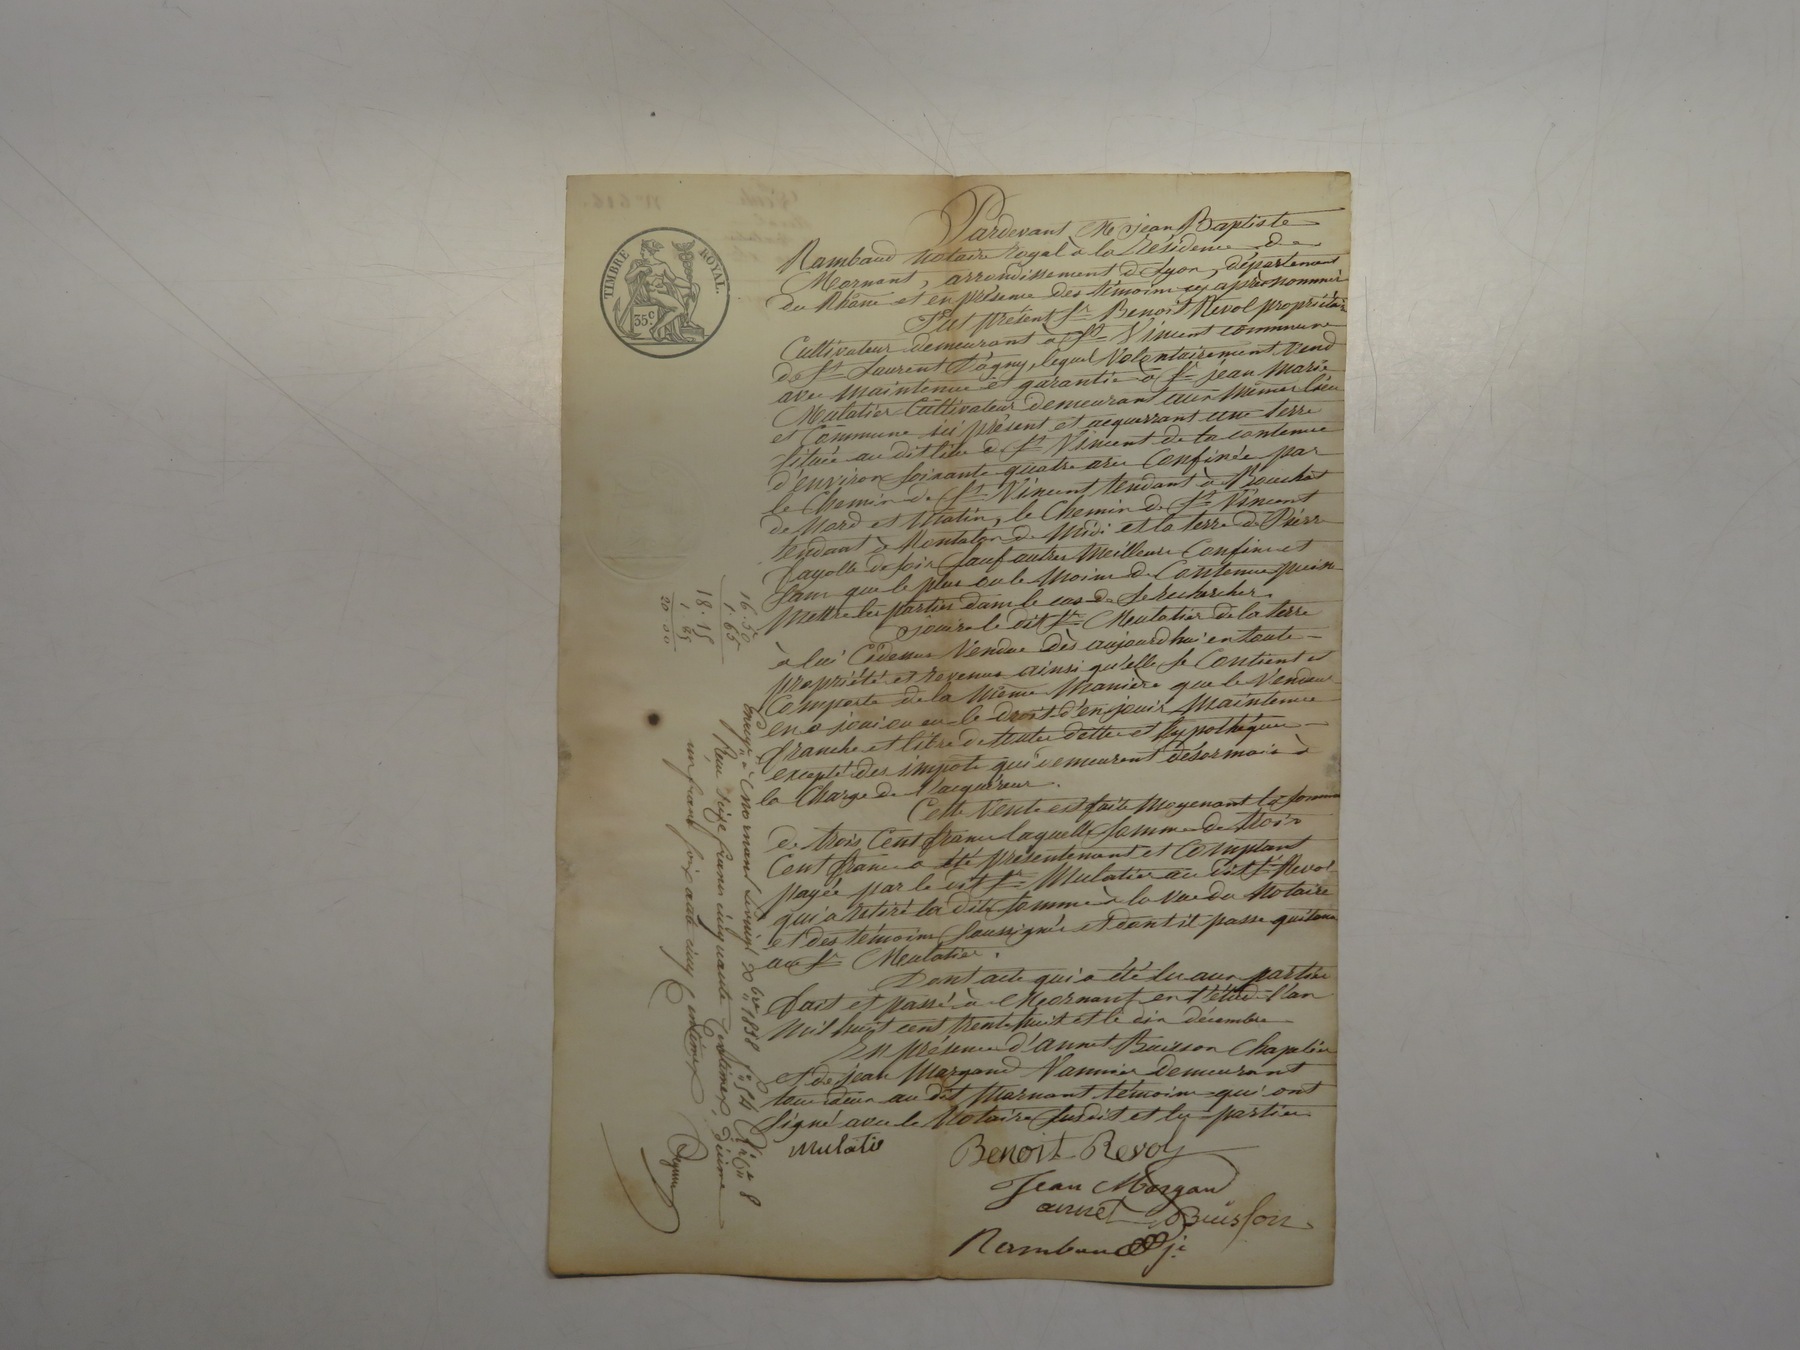 TIMBRE ROYAL.
35 c.
Pardevant Me jean Baptiste
Rambaud Notaire Royal à la Résidence de
Mornant, arrondissement de Lyon, département
du Rhône et en présence des témoins cy après nommés
fut présent Sr Benoit Revol propriétaire
Cultivateur demeurant à St Vincent commune
de St Laurent D'agny, lequel Volontairement vend
avec maintenue et garantie à Sr jean Marie
Mulatier Cultivateur demeurant aux Mêmes lieu
et Commune ici présent et acquerrant une terre
située au dit lieu de St Vincent de la contenue
d'environ soixante quatre ares Confinée par
le Chemin de St Vincent tendant à Bouchat
de Nord et Matin, le Chemin de St Vincent
tendant à Montaton de Midi et la terre de Pierre
Fayolle de soir sauf autres Meilleurs Confins et
sans que le plus ou le Moins de Contenue puisse
mettre les parties dans le cas de se rechercher.
jouira le dit Sr Mulatier de la terre
à lui Cidessus Vendue dès aujourd'hui en toute
propriété et revenus ainsi qu'elle se Contient et
Comporte de la Même Manière que le Vendeur
en a joui ou eu le droit d'en jouir Maintenue
franche et libre de toutes dettes et hypothèques
excepté des impots qui demeurent désormais à
la Charge de l'acquéreur.
Cette Vente est faite Moyenant la somme
de trois Cent francs laquelle somme de trois
Cent francs a été présentement et Comptant
payée par le dit Sr Mulatier au dit Sr Revol
qui a retiré la dite somme à la Vue du Notaire
et des témoins soussignés et dont il passe quitance
au Sr Mulatier.
Dont acte qui a été lu aux parties
fait et passé à Mornant en l'étude l'an
Mil huit cent trente huit et le dix décembre
En présence d'annet Buisson Chapelier
et de jean Margand Vannier demeurant
tous deux au dit Mornant témoins qui ont
signé avec le Notaire susdit et les parties
Mulatie
Benoit Revol
Jean Morgand
annet Buisson
Rambaud je
16.50
1.65
18.15
1 85
20 00
Enregé à Mornant le vingt Xbre 1838 fo 54 Vo Cse 8
Reçu seize francs cinquante centimes, décime
un franc soixante cinq centimes